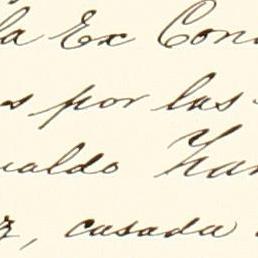 la Ex Con
s por las
ualdo Har
z, casada